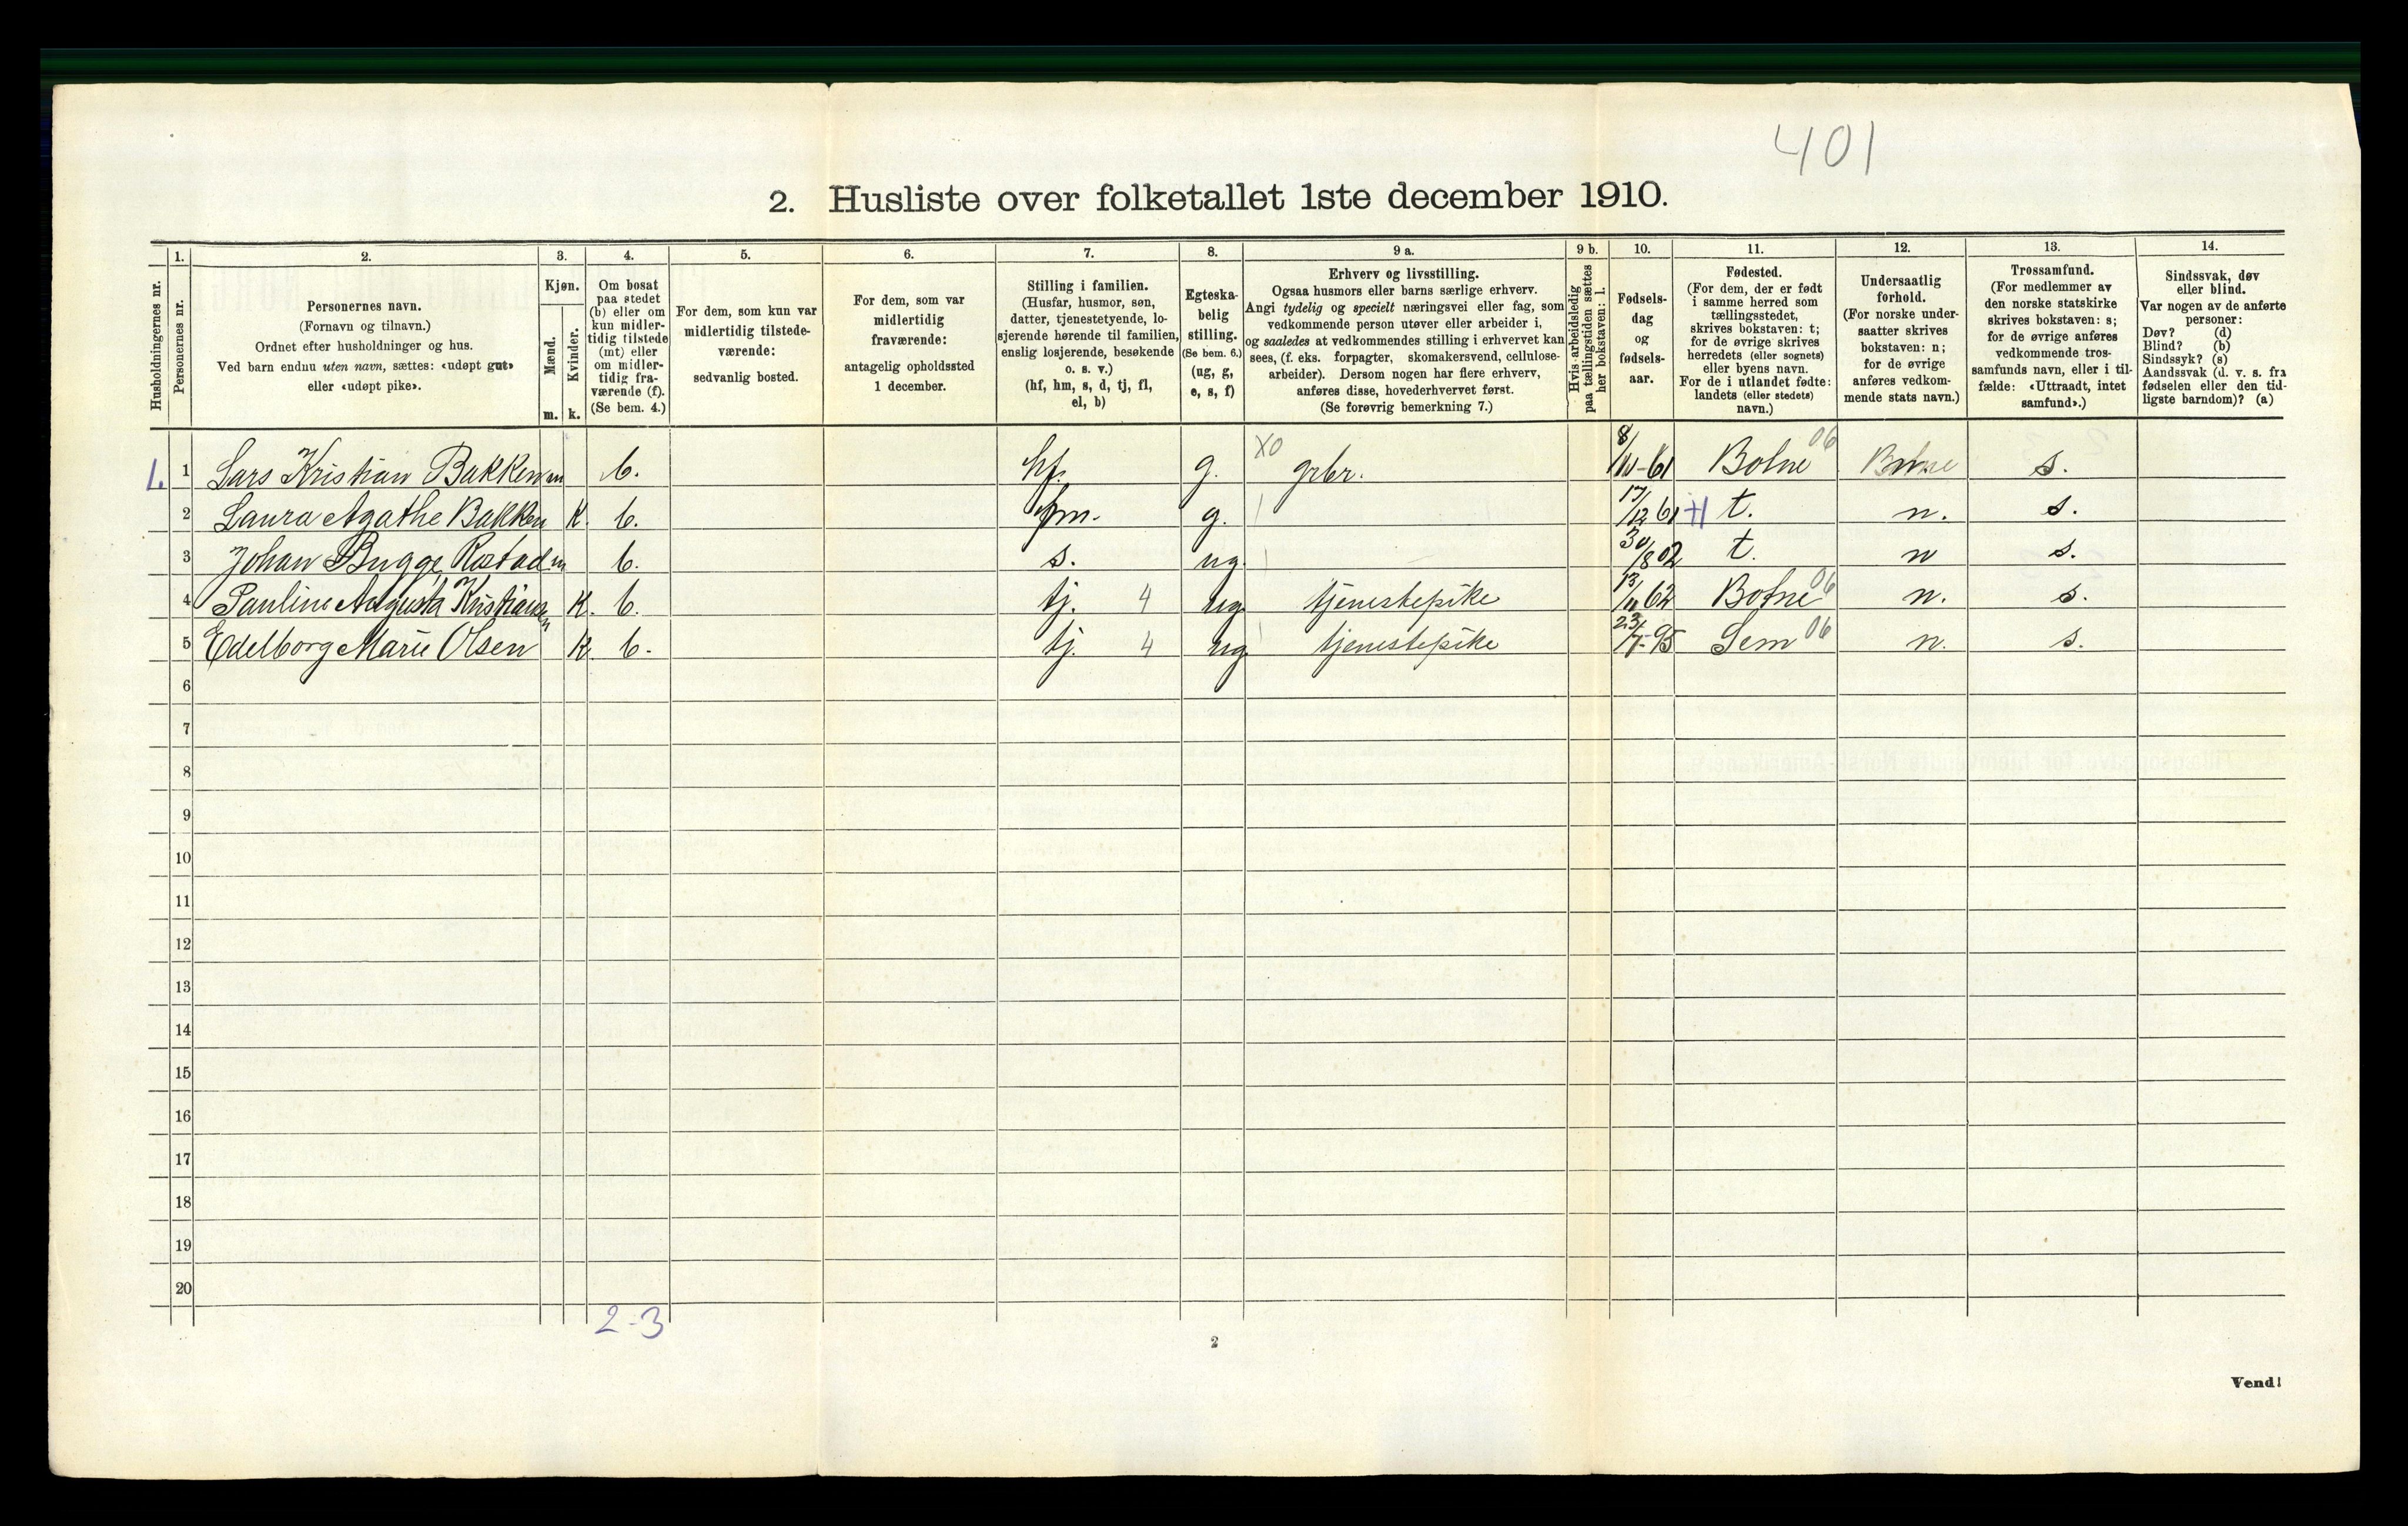 401
2. Husliste over folketallet 1ste december 1910.
Husholdningernes nr.
1. Personernes nr.
2. Personernes navn. (Fornavn og tilnavn.) Ordnet efter husholdninger og hus. Ved barn endnu uten navn, sættes: «udøpt gut» eller «udøpt pike».
3. Kjøn. Mænd. m. Kvinder. k.
4. Om bosat paa stedet (b) eller om kun midlertidig tilstede (mt) eller om midlertidig fraværende (f). (Se bem. 4.)
5. For dem, som kun var midlertidig tilstedeværende: sedvanlig bosted.
6. For dem, som var midlertidig fraværende: antagelig opholdssted 1 december.
7. Stilling i familien. (Husfar, husmor, søn, datter, tjenestetyende, losjerende hørende til familien, enslig losjerende, besøkende o. s. v.) (hf, hm, s, d, tj, fl, el, b)
8. Egteskabelig stilling. (Se bem. 6.) (ug, g, e, s, f)
9 a. Erhverv og livsstilling. Ogsaa husmors eller barns særlige erhverv. Angi tydelig og specielt næringsvei eller fag, som vedkommende person utøver eller arbeider i, og saaledes at vedkommendes stilling i erhvervet kan sees, (f. eks. forpagter, skomakersvend, cellulosearbeider). Dersom nogen har flere erhverv, anføres disse, hovederhvervet først. (Se forøvrig bemerkning 7.)
9 b. Hvis arbeidsledig paa tællingstiden sættes her bokstaven: l.
10. Fødselsdag og fødselsaar.
11. Fødested. (For dem, der er født i samme herred som tællingsstedet, skrives bokstaven: t; for de øvrige skrives herredets (eller sognets) eller byens navn. For de i utlandet fødte: landets (eller stedets) navn.)
12. Undersaatlig forhold. (For norske undersaatter skrives bokstaven: n; for de øvrige anføres vedkommende stats navn.)
13. Trossamfund. (For medlemmer av den norske statskirke skrives bokstaven: s; for de øvrige anføres vedkommende trossamfunds navn, eller i tilfælde: «Uttraadt, intet samfund».)
14. Sindssvak, døv eller blind. Var nogen av de anførte personer: Døv? (d) Blind? (b) Sindssyk? (s) Aandssvak (d. v. s. fra fødselen eller den tidligste barndom)? (a)
1. 1 Lars Kristian Bakken m b. hf. g. X0 grbr. 8/10-61 Botne 06 Botne s.
2 Laura Agathe Bakken K. b. hm. g. 17/12 61 t. n. s.
3 Johan Bugge Rostad m b. s. ug. 30/8 02 t. n s.
4 Pauline Augusta Kristiansen K. b. tj. 4 ug. tjenestepike 13/11 62 Botne 06 n. s.
5 Edelborg Marie Olsen K. b. tj. 4 ug tjenestepike 23/7-95 Sem 06 n. s.
6
7
8
9
10
11
12
13
14
15
16
17
18
19
20
2-3
2
Vend!